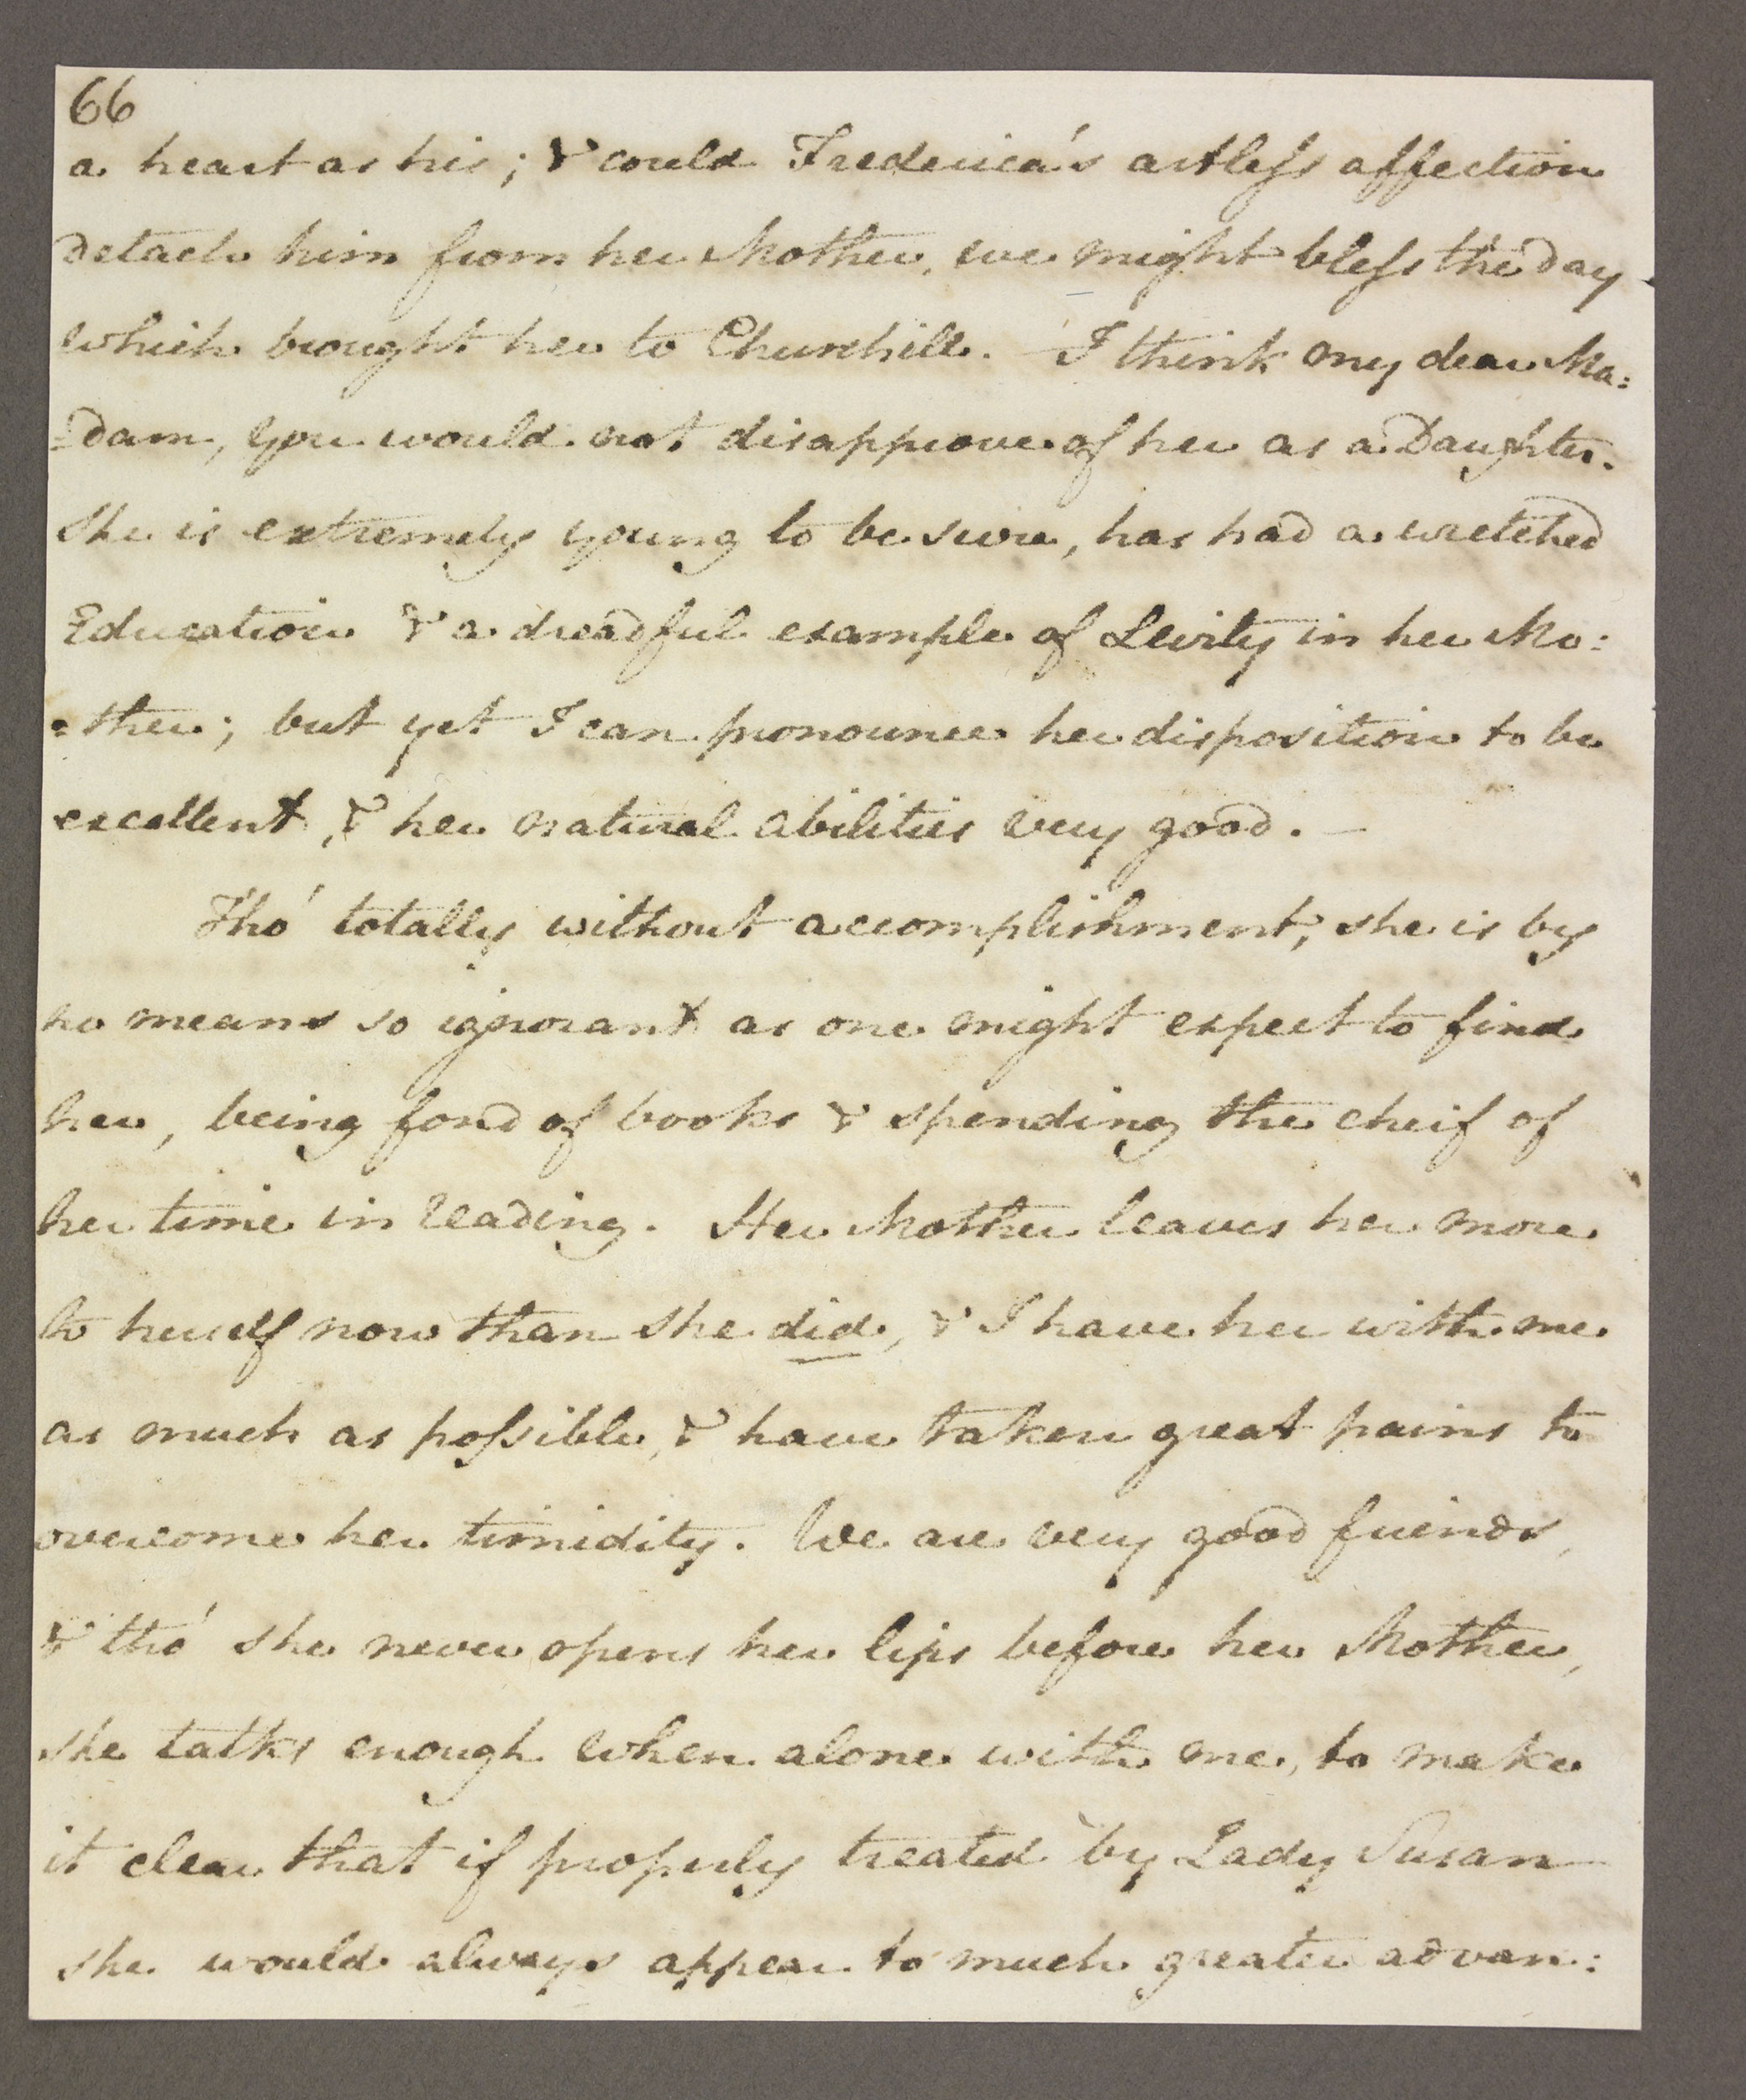 66
a heart as his; & could Frederica's artless affection
detach him from her Mother, we might bless the day
which brought her to Churchill. I think my dear Ma:
=dam, you would not disapprove of her as a Daughter.
She is extremely young to be sure, has had a wretched
Education & a dreadful example of Levity in her Mo:
=ther; but yet I can pronounce her disposition to be
excellent, & her natural abilities very good. —
Tho' totally without accomplishment, she is by
no means so ignorant as one might expect to find
her, being fond of books & spending the cheif of
her time in reading. Her Mother leaves her more
to herself now than she did, & I have her with me
as much as possible, & have taken great pains to
overcome her timidity. We are very good friends,
& tho' she never opens her lips before her Mother,
she talks enough when alone with me, to make
it clear that if properly treated by Lady Susan
she would always appear to much greater advan: